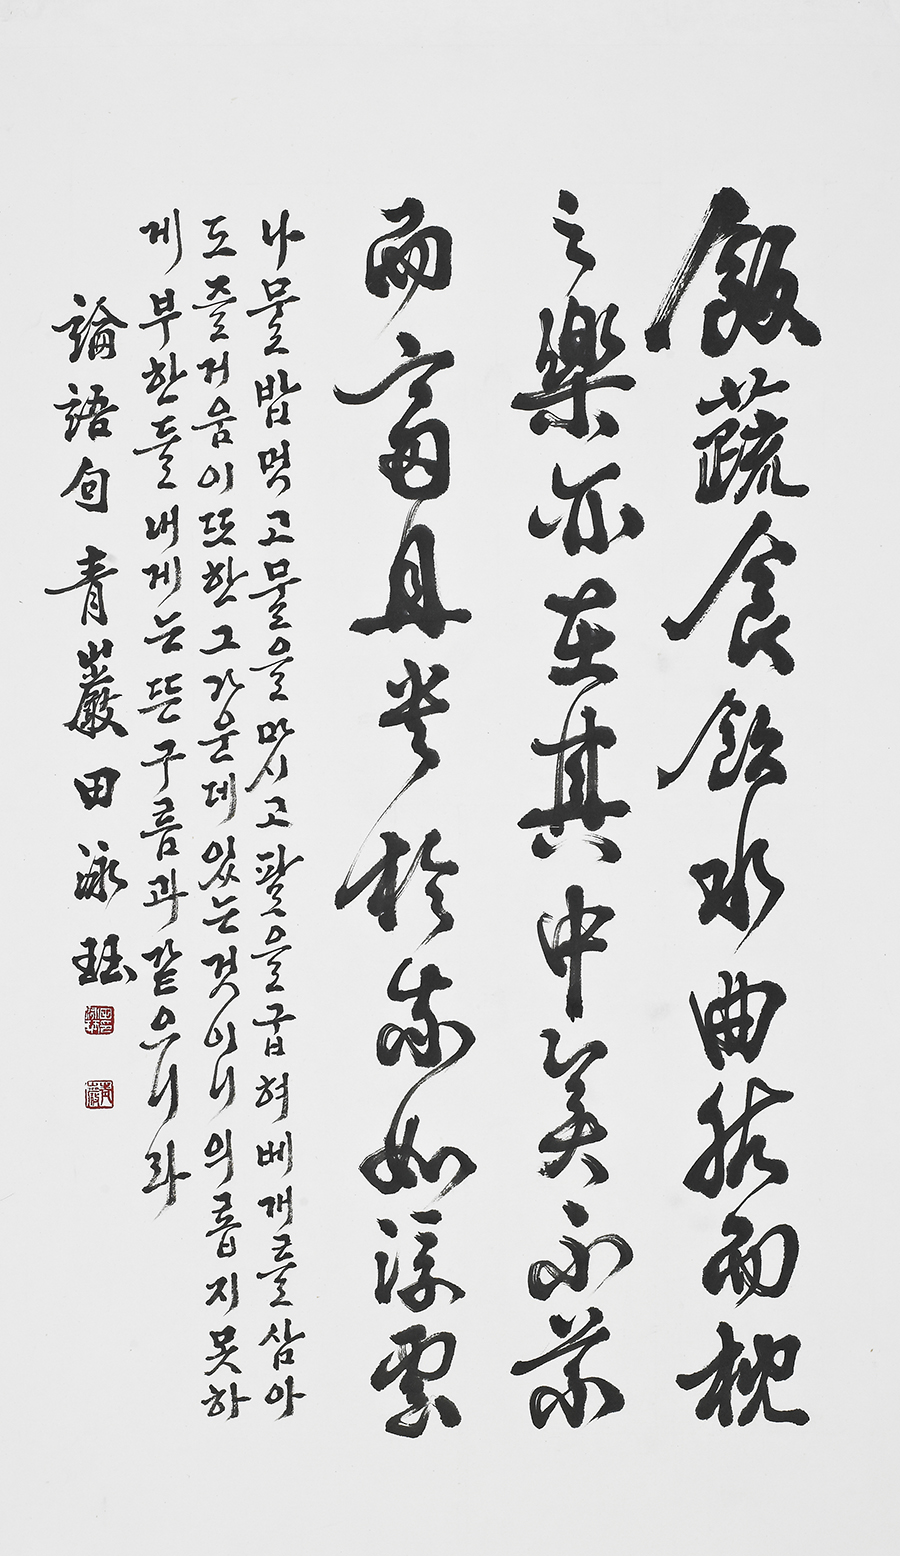 飯蔬食飲水曲肱而枕
之樂亦在其中矣不義
而富且貴於我如浮雲
나물밥먹고물을마시고팔을굽혀베개를삼아
도즐거움이또한그가운데있는것이니의롭지못하
게부한들내게는뜬구름과같으니라
論語句 青巖 田泳